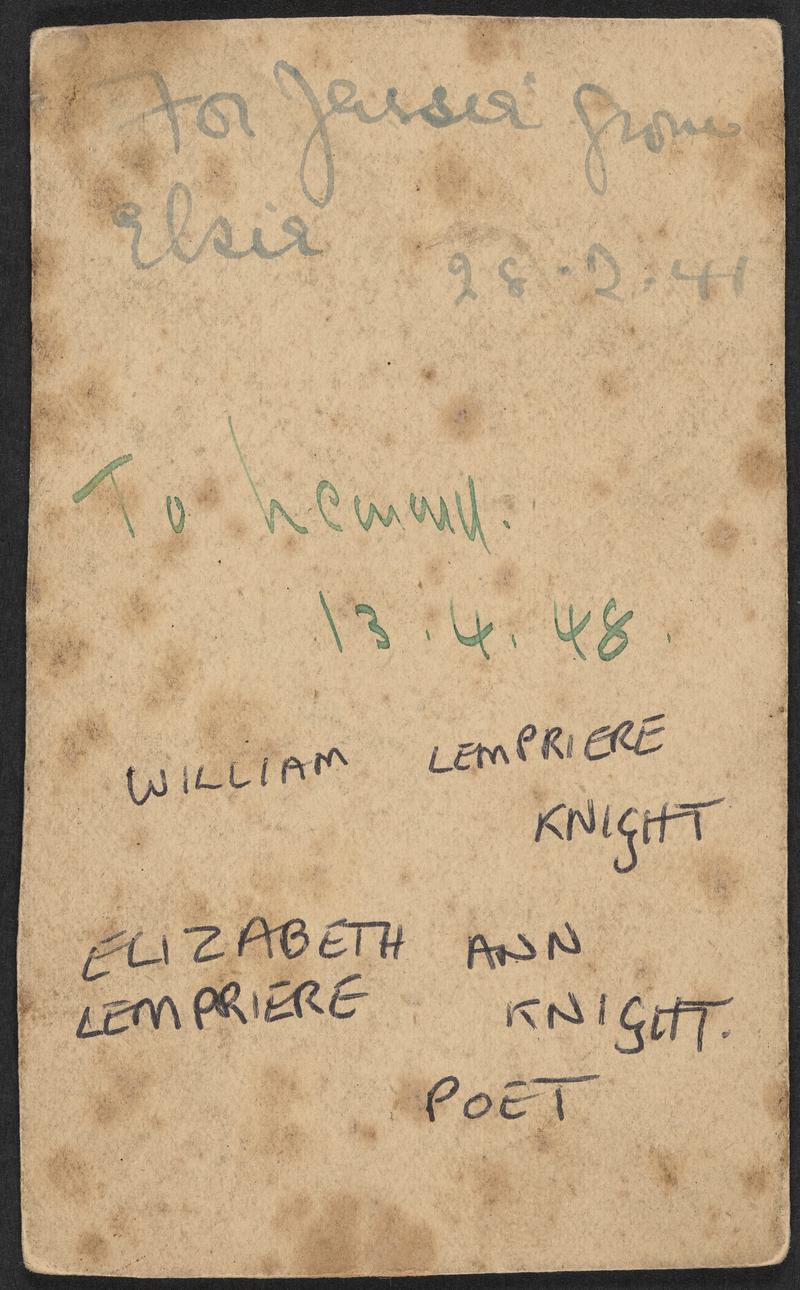 For Jessie from
Elsie 28.2.41
To Leonard.
13.4.48.
WILLIAM LEMPRIERE
KNIGHT
ELIZABETH ANN
LEMPRIERE KNIGHT.
POET